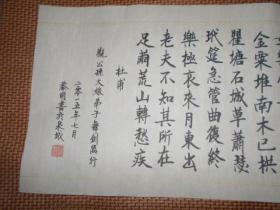 金粟堆南木已拱
瞿塘石城草蕭瑟
玳筵急管曲復終
樂極哀來月東出
老夫不知其所往
足繭荒山轉愁疾
杜甫
觀公孫大娘弟子舞劍器行
二〇一五年七月
書於泉城